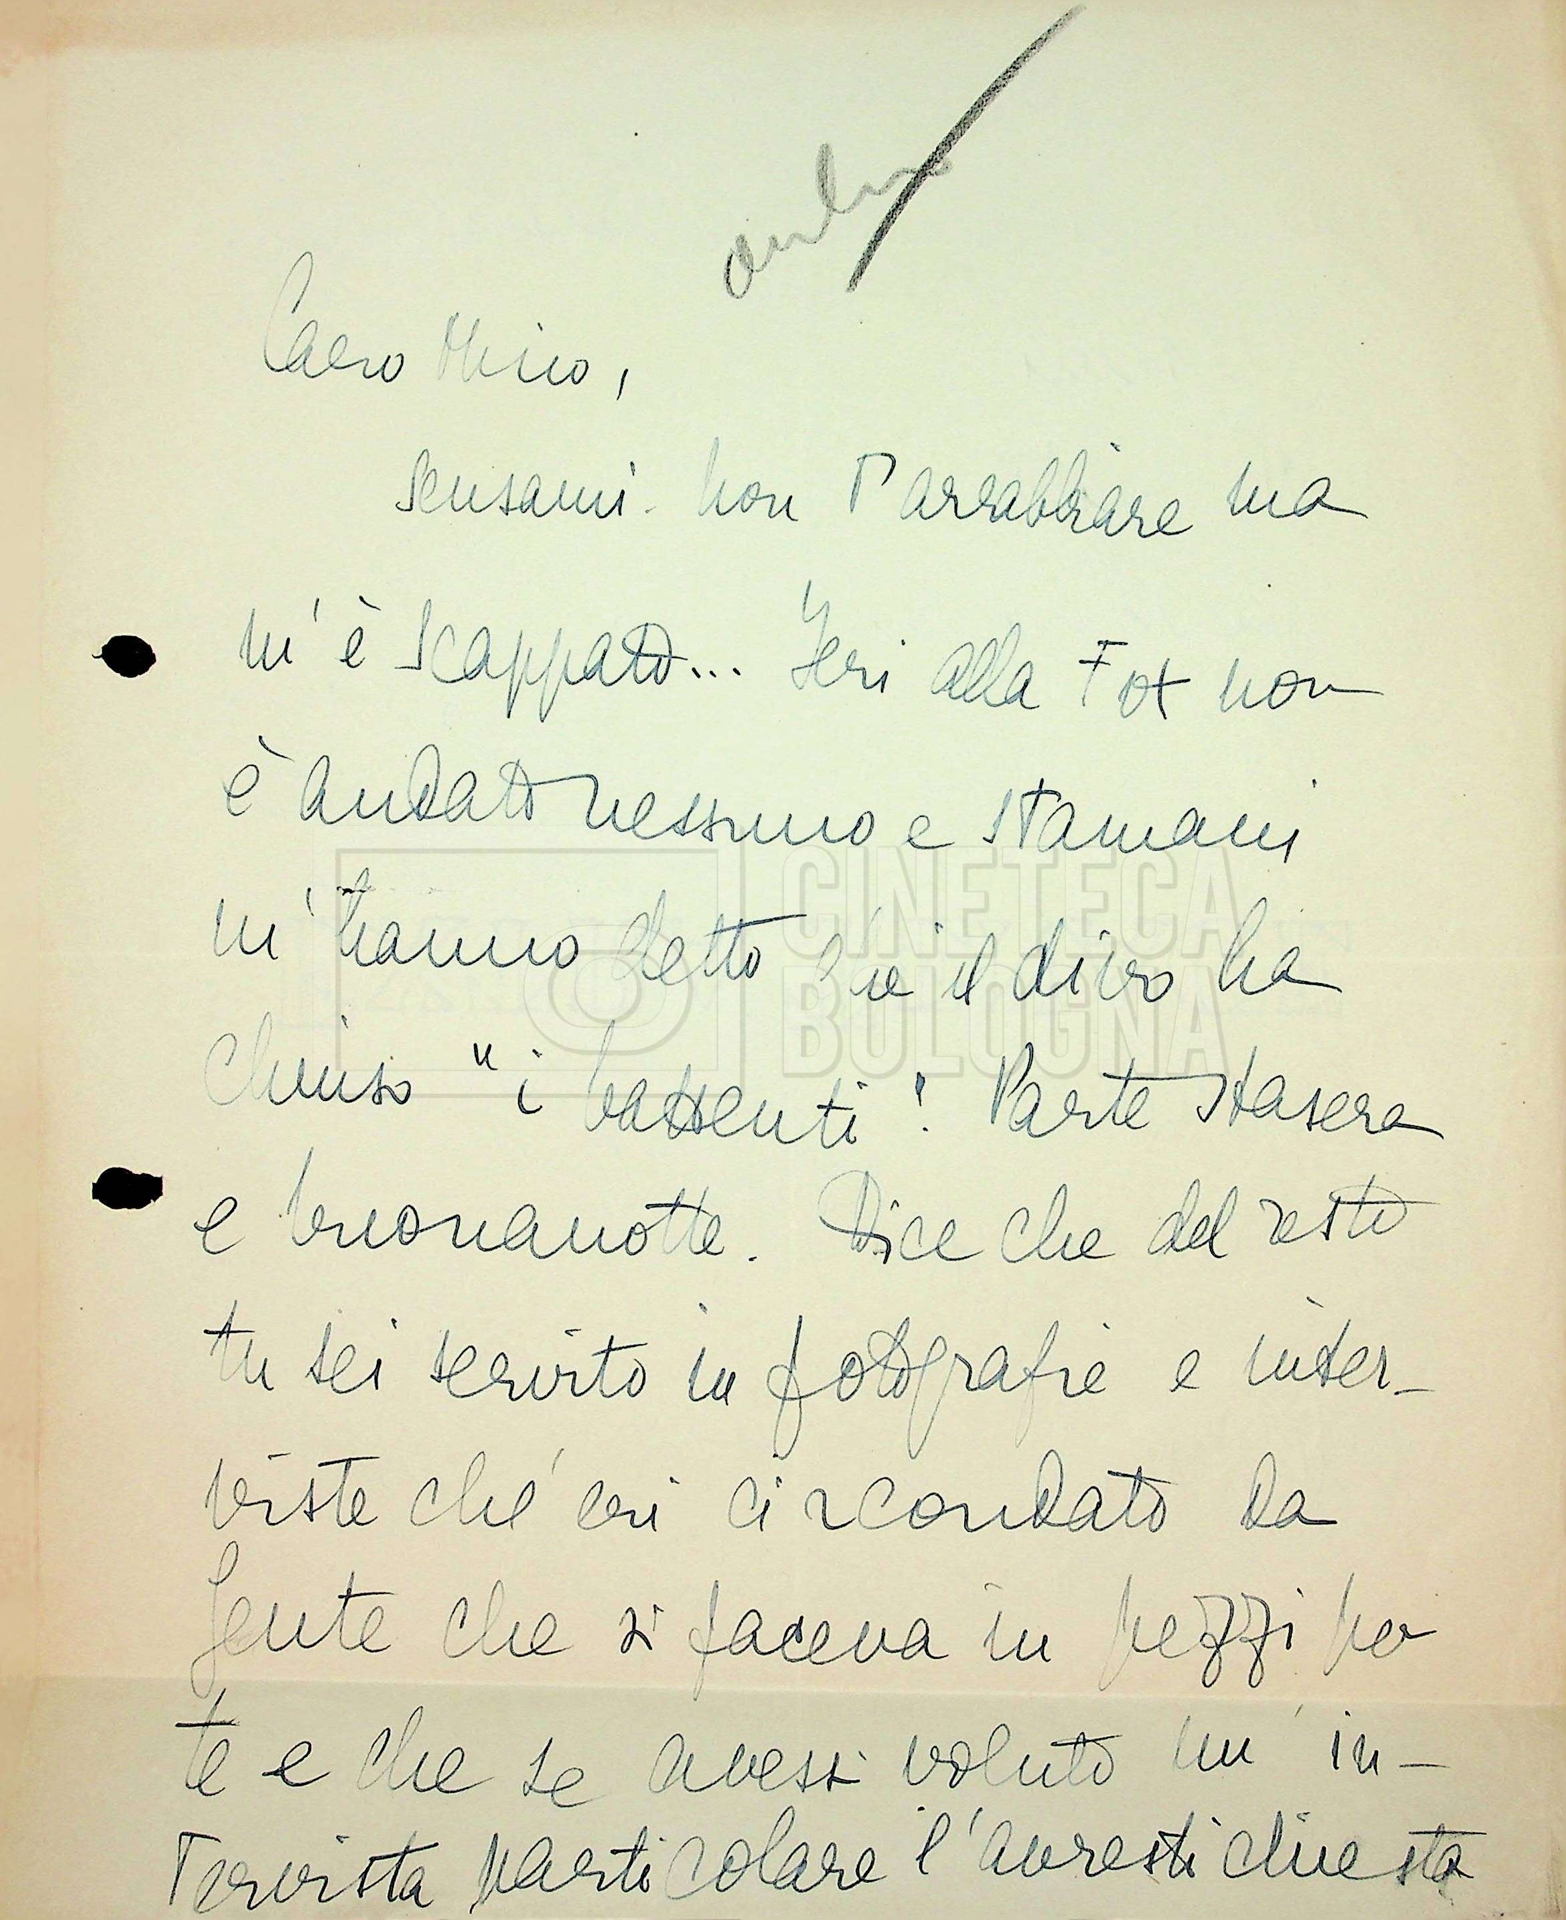 Caro Mino,
scusami. Non t'arrabbiare ma
m'è scappato... Ieri alla Fox non
è andato nessuno e stamani
m'hanno detto che il divo ha
chiuso "i battenti"! Parte stasera
e buonanotte. Dice che del resto
tu sei servito in fotografie e inter-
viste ché eri circondato da
gente che si faceva in pezzi per
te e che se avessi voluto un'in-
tervista particolare l'avresti chiesta
CINETECA
BOLOGNA